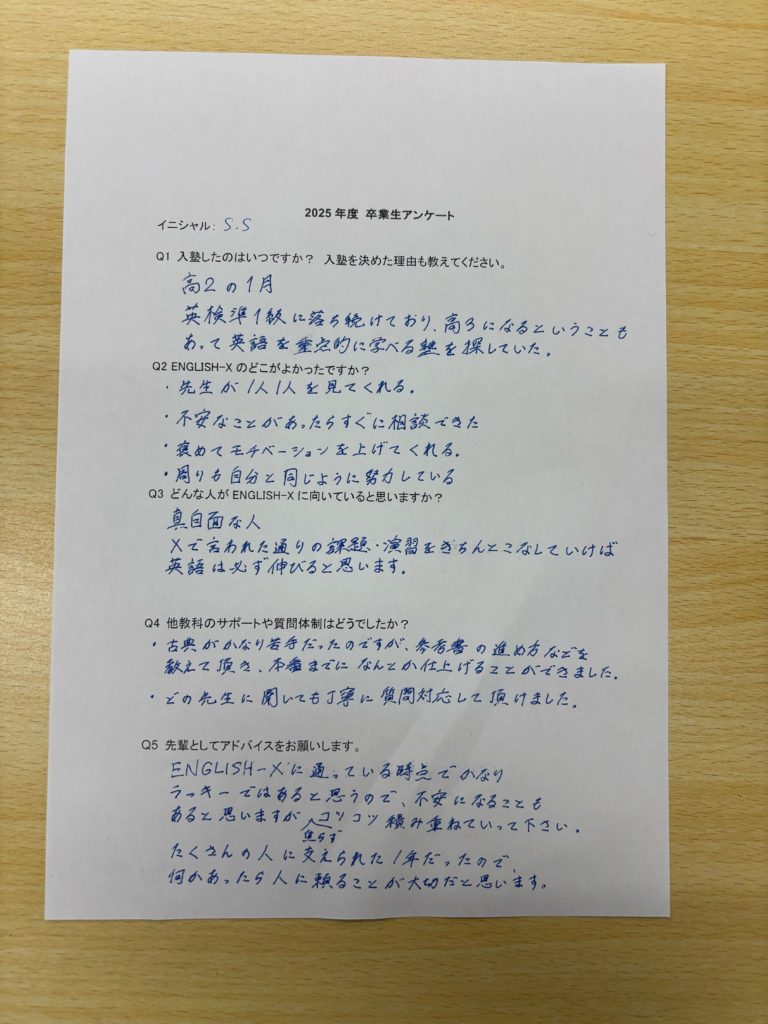 2025 年度 卒業生アンケート
イニシャル: S.S
Q1 入塾したのはいつですか? 入塾を決めた理由も教えてください。
高2の1月
英検準1級に落ち続けており、高3になるということも
あって英語を重点的に学べる塾を探していた。
Q2 ENGLISH-X のどこがよかったですか?
・先生が1人1人を見てくれる。
・不安なことがあったらすぐに相談できた
・褒めてモチベーションを上げてくれる。
・周りも自分と同じように努力している
Q3 どんな人が ENGLISH-X に向いていると思いますか?
真面目な人
Xで言われた通りの課題・演習をきちんとこなしていけば
英語は必ず伸びると思います。
Q4 他教科のサポートや質問体制はどうでしたか?
・古典がかなり苦手だったのですが、参考書の進め方などを
教えて頂き、本番までになんとか仕上げることができました。
・どの先生に聞いても丁寧に質問対応して頂けました。
Q5 先輩としてアドバイスをお願いします。
ENGLISH-Xに通っている時点でかなり
ラッキーではあると思うので、不安になることも
あると思いますが コツコツ積み重ねていって下さい。
焦らず
たくさんの人に支えられた1年だったので、
何かあったら人に頼ることが大切だと思います。